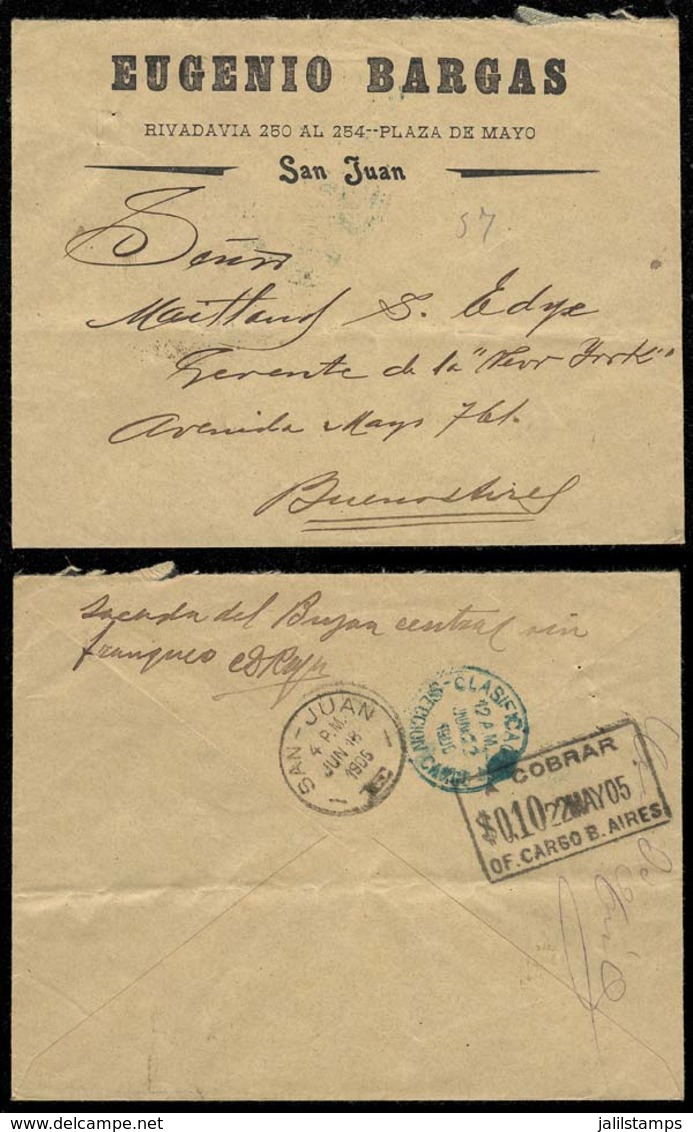 EUGENIO BARGAS
RIVADAVIA 250 AL 254--PLAZA DE MAYO
San Juan
57
Señor
Maitland S. Edye
Gerente de la "New York"
Avenida Mayo 761.
Buenos Aires
Sacada del Buzon central sin
franqueo
SAN-JUAN
4 P.M.
JUN 18
1905
CLASIFICA
12 A.M.
JUN 22
1905
SECCION CARGO
A COBRAR
$0.10 22MAY05
OF. CARGO B. AIRES
jalilstamps